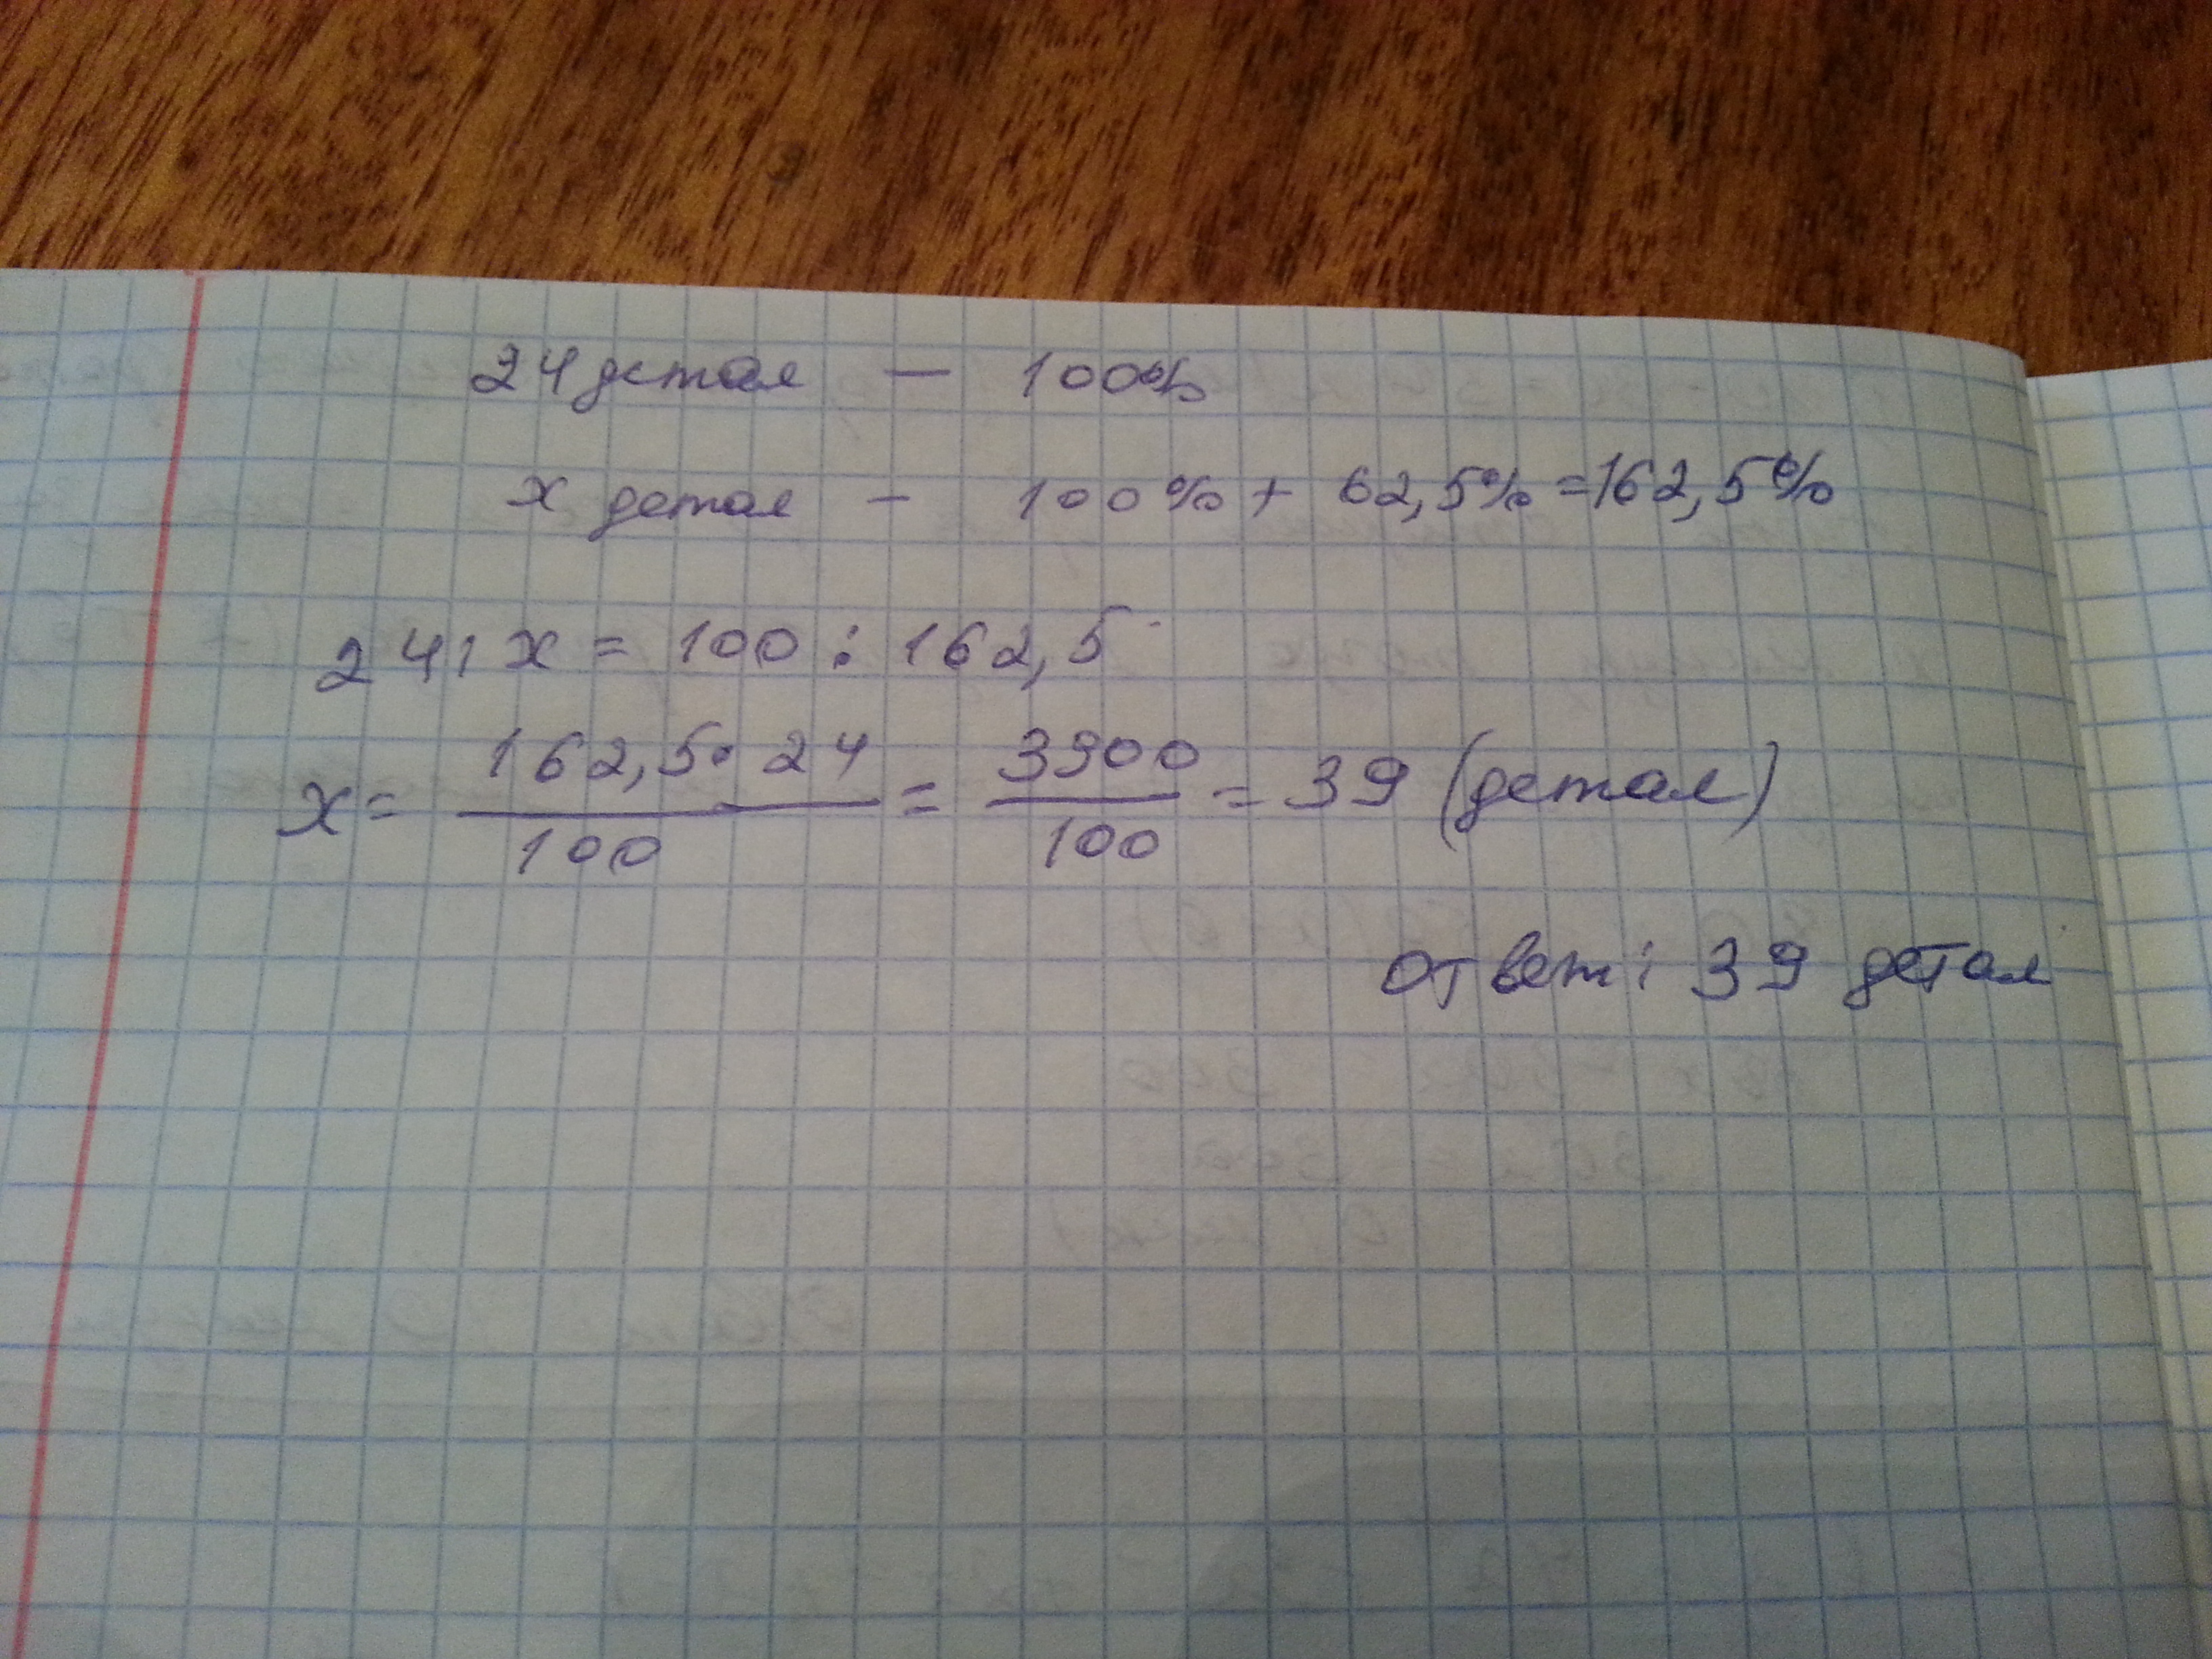 24 детал — 100%
x детал - 100% + 62,5% = 162,5%
24 : x = 100 : 162,5
x = 162,5 · 24 / 100 = 3900 / 100 = 39 (детал)
ответ: 39 детал